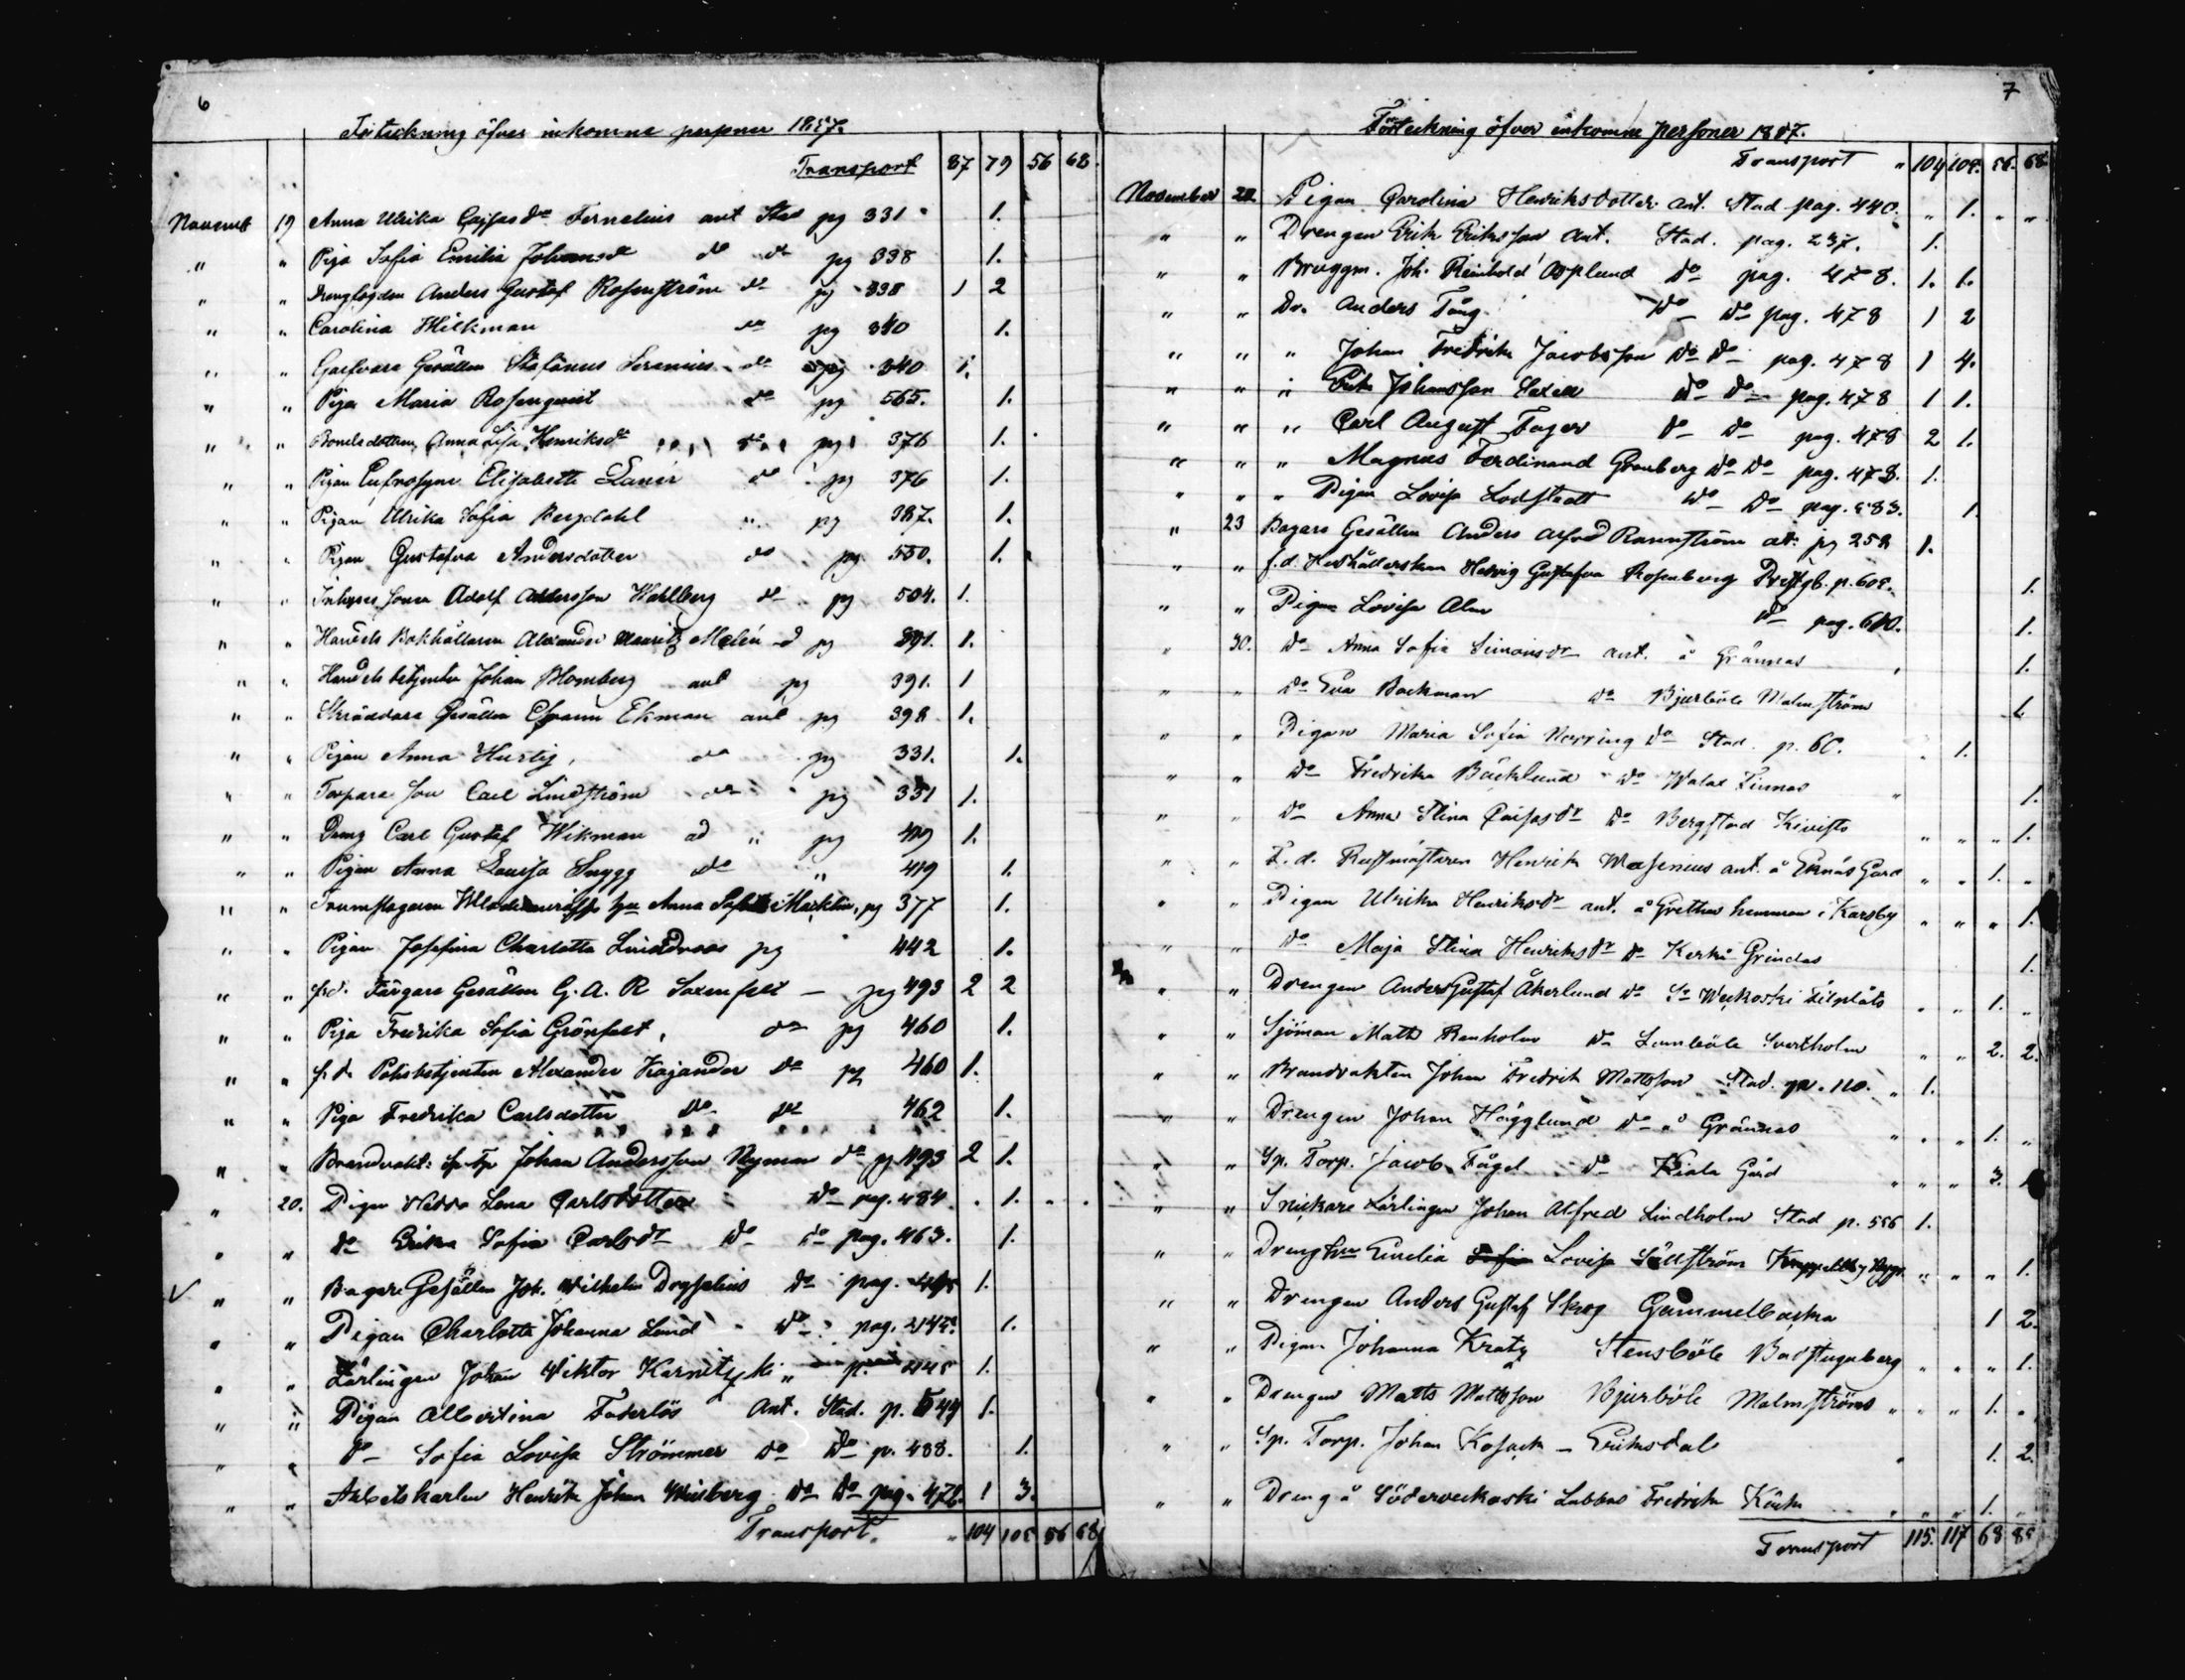 6
Förteckning öfver inkomne personer 1887.
Transport 87 79 56 68.
November 19 Anna Ulrika Cajsasdr Fernelius ant Stad pg 331 1.
" " Piga Sofia Emilia Johansdr do do pg 338 1.
" " Anders Gustaf Rosenström do pg 338 1 2
" " Carolina Milkman do pg 340 1.
" " Garfvare Gesällen Stefanus do pg 340 1.
" " Piga Maria Rosenqvist do pg 565. 1.
" " Anna Lisa Henriksdr do pg 376 1.
" " Pigan Eufrosyne Elisabeth do pg 376 1.
" " Pigan Ulrika Sofia Bergdahl " pg 387. 1.
" " Pigan Gustafva Andersdotter do pg 550. 1.
" " Inhyses Sonen Adolf Andersson Wahlberg do pg 504. 1.
" " Handels Bokhållaren Alexander Mauritz Melén d pg 391. 1.
" " Handels betjenten Johan Blomberg ant pg 391. 1
" " Skräddare Gesällen Ekman ant pg 398. 1.
" " Pigan Anna Hurtig, do pg 331. 1.
" " Torpare Son Carl Lindström do pg 331 1.
" " Dreng Carl Gustaf Wikman ad " pg 419 1.
" " Pigan Anna Lovisa Snygg do " 419 1.
" " Trumslagaren Anna Sofia pg 377 1.
" " Pigan Josefina Charlotta Lindroos pg 442 1.
" " f.d. Färgare Gesällen G. A. R Saxenfelt — pg 493 2 2
" " Piga Fredrika Sofia Grönfelt, do pg 460 1.
" " f.d. Polisbetjenten Alexander Kajander do pg 460 1.
" " Piga Fredrika Carlsdotter do do 462 1.
" " Brandvakt: Johan Andersson Nyman do pg 493 2 1.
" 20. Pigan Hedda Lena Carlsdotter do pag. 484 . 1. . .
" " do Erika Sofia Carlsdr do do pag. 463. 1.
" " Bagare Gesällen Joh. Wilhelm do pag. 1.
" " Pigan Charlotta Johanna Lund " do pag. 1.
" " Lärlingen Johan Viktor " p. 448 1.
" " Pigan Albertina Faderlös Ant. Stad. p. 544 1.
" " do Sofia Lovisa Strömmer do do p. 488. 1.
" " Arbetskarlen Henrik Johan do do pag. 478. 1 3.
Transport. " 104 108 56 68
7
Förteckning öfver inkomne personer 1887.
Transport " 104 108. 56. 68
November 22 Pigan Carolina Henriksdotter ant. Stad pag. 440. " 1. " "
" " Drengen Erik Eriksson ant. Stad. pag. 237. 1.
" " Bruggm. Joh. Reinhold Asplund do pag. 478. 1. 1.
" " Dr. Anders Tång do do pag. 478 1 2
" " " Johan Fredrik Jacobsson do do pag. 478 1 4.
" " " Erik Johansson do do pag. 478 1 1.
" " " Carl August Fager do do pag. 478 2 1.
" " " Magnus Ferdinand Granberg do do pag. 478. 1.
" " " Pigan Lovisa Lodstedt do do pag. 583. 1.
" 23 Bagare Gesällen Anders Alfred Rannström ant: pg 258 1.
" " f.d. Hushållerskan Hedvig Gustafva Rosenberg p. 609. 1.
" " Pigan Lovisa Alm do pag. 610. 1.
" 30. do Anna Sofia Simonsdr ant. å Grännas 1.
" " do Eva Backman do Bjurböle Malmström 1.
" " Pigan Maria Sofia Norring do Stad. p. 60. " 1.
" " do Fredrika Bäcklund do Walax Finnas " 1.
" " do Anna Stina Cajsasdr do Bergstad Kivistö " " " 1.
" " F.d. Rustmästaren Henrik Wasenius ant. å Ernäs Gård " " 1. "
" " Pigan Ulrika Henriksdr ant. å Grettas hemman i Karsby " " " 1.
" " do Maja Stina Henriksdr do Kerko Grindas 1.
" " Drengen Anders Gustaf Åkerlund do So Weckoski Filplåts " " 1. "
" " Sjöman Matts Renholm do Svartholm " " 2. 2.
" " Brandvakten Johan Fredrik Mattsson Stad. pa. 110. " 1.
" " Drengen Johan Hägglund do å Grännas " " " 1. "
" " Sp. Torp. Jacob Fågel do Kiala Gård " " " 3.
" " Snickare Lärlingen Johan Alfred Lindholm Stad p. 556 1.
" " Dreng hu Emilia Lovisa Sällström " " " 1.
" " Drengen Anders Gustaf Skog Gammelbacka 1 2.
" " Pigan Johanna Kratz Stensböle Badstuguberg " " " 1.
" " Drengen Matts Mattsson Bjurböle Malmströms " " " 1. "
" " Sp. Torp. Johan Kosack — Eriksdal " 1. 2.
" " Dreng å Söderveckoski Labbas Fredrik " " " 1. "
Transport 115. 117 68 88